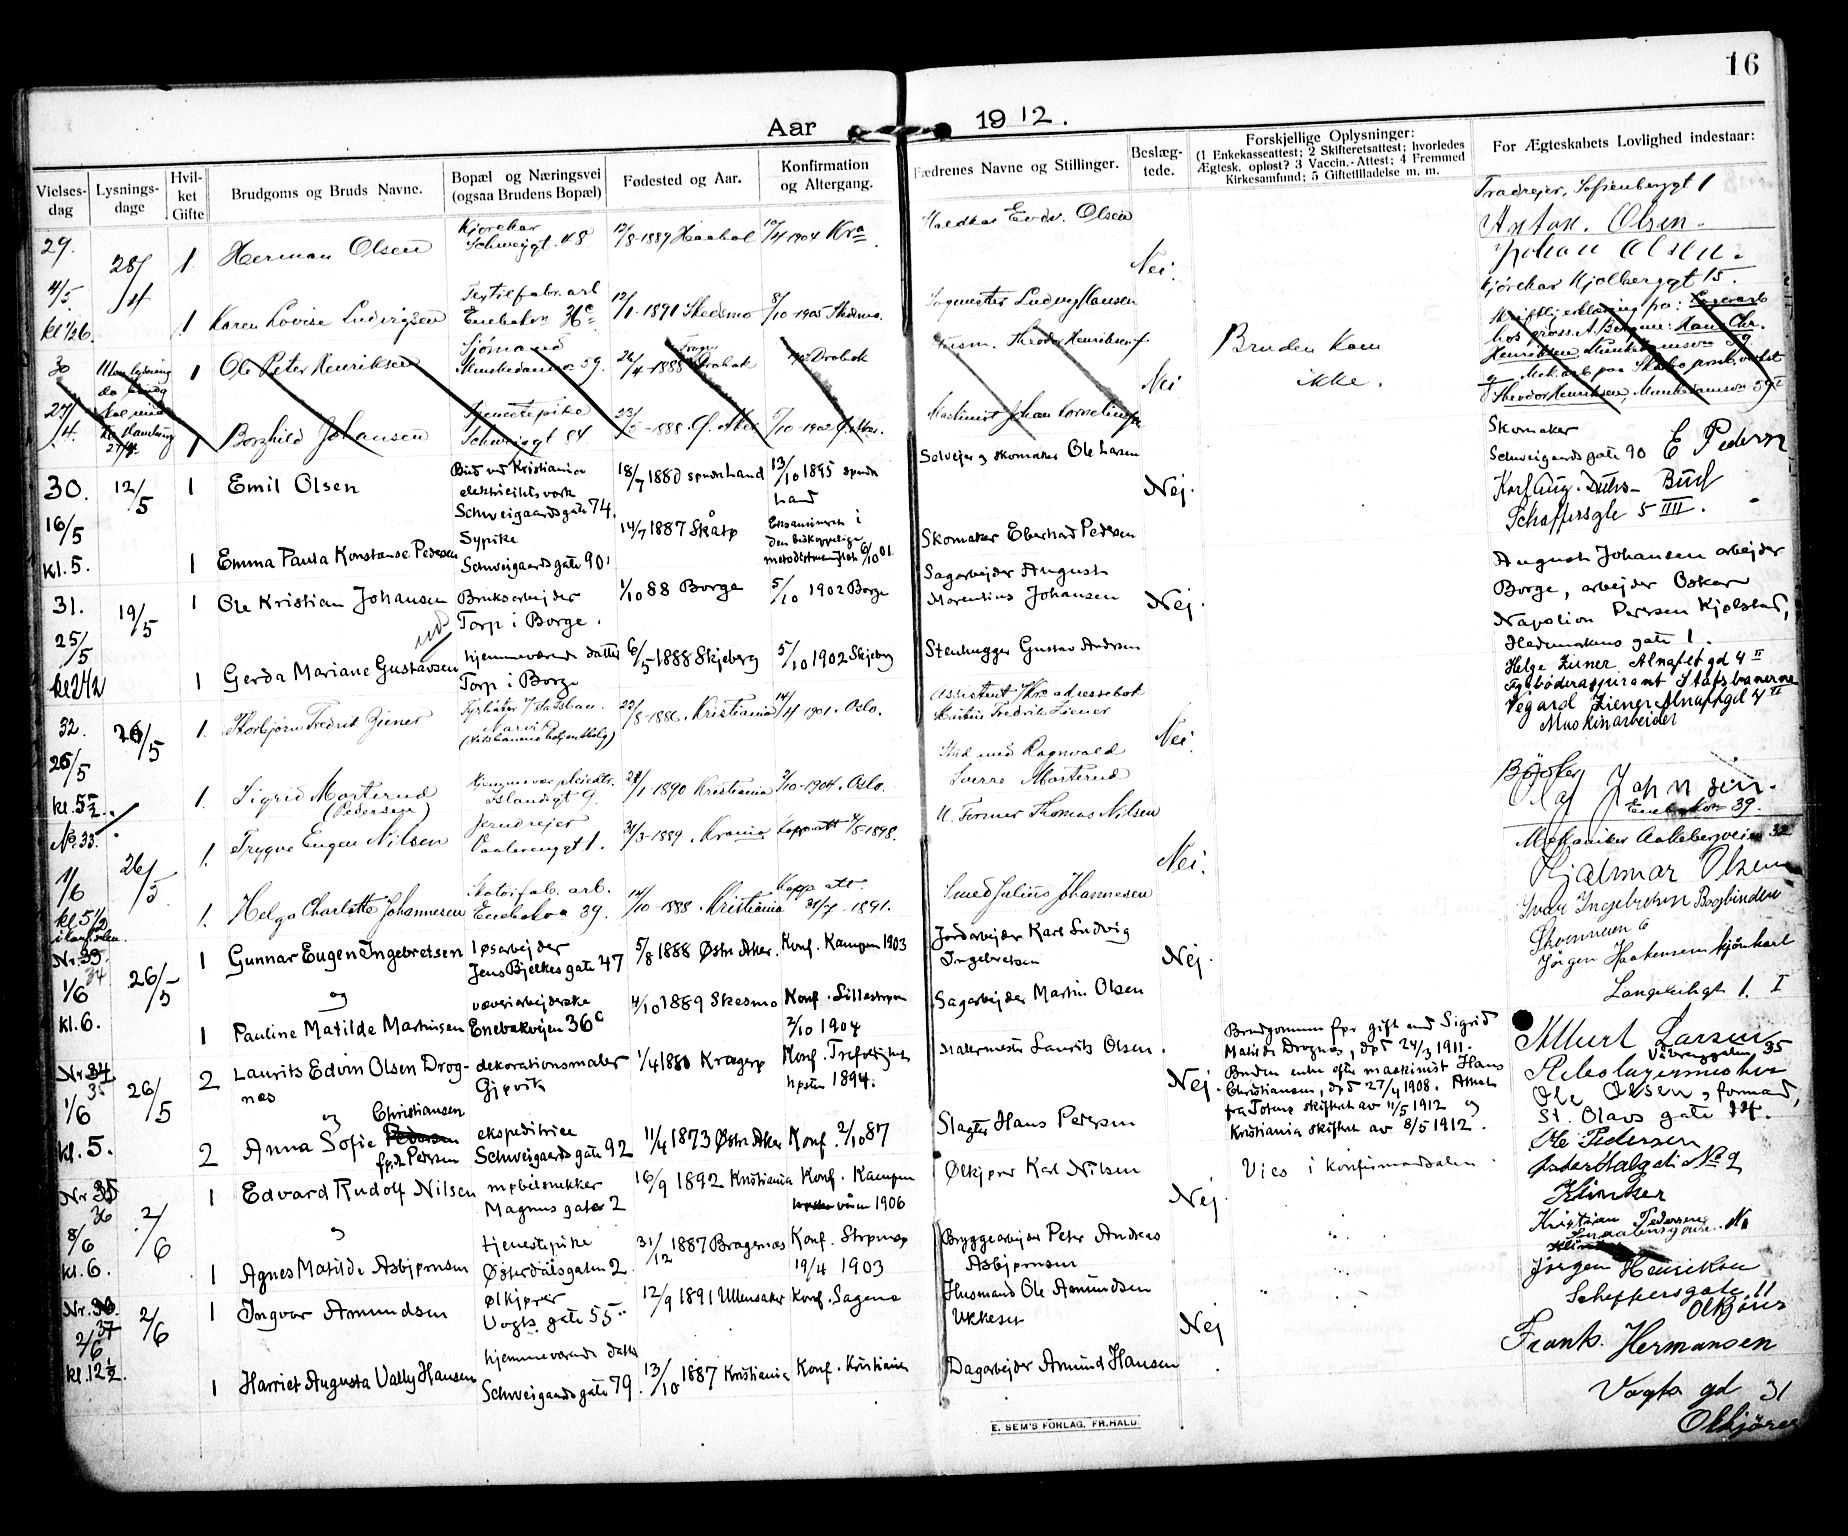 16
Aar 1912.
Vielses-dag
Lysnings-dage
Hvil-ket Gifte
Brudgoms og Bruds Navne.
Bopæl og Næringsvei (ogsaa Brudens Bopæl)
Fødested og Aar.
Konfirmation og Altergang.
Fædrenes Navne og Stillinger.
Beslæg-tede.
Forskjellige Oplysninger:
(1 Enkekasseattest; 2 Skifteretsattest; hvorledes
Ægtesk. opløst? 3 Vaccin.-Attest; 4 Fremmed
Kirkesamfund; 5 Giftetilladelse m. m.
For Ægteskabets Lovlighed indestaar:
29. 28/4 1 Herman Olsen
Kjørekar Schweigt. 48
12/8-1889 Haabøl
4-1904 Kra
Olsen
Nei.
Anton. Olsen.
Johan Olsen.
Kjørekar Kjølberggt 15.
4/5
1 Karen Lovise Ludvigsen
Textilfabr. arb
Enebakv. 36c
12/1-1891 Skedsmo
8/10-1905 Skedsmo.
Ludvig Hansen
30
1 Ole Peter Henriksen
Sjømand
Munkedamsv 59.
26/4-1888 Drøbak
Drøbak
Theodor Henriksen
Nei
Bruden kom
ikke.
Theodor Henriksen, Munkedamsv 59 I
27/4.
1 Borghild Johansen
Tjenestepike
Schweigt 84
Maskinist Johan Kornelius
30. 12/5 1 Emil Olsen
Bud ved Kristiania
elektricitetsverk
Schweigaardsgate 74.
18/7 1880 søndr Land
13/10 1895 søndr
Land
Selveier og skomaker Ole Larsen
Nej.
Skomaker
Schweigaardsgate 90 E Pedersen
Karl Aug. Bud
Schøffersgt 5 IIII.
16/5
kl. 5.
1 Emma Paula Konstanse Pedersen
Sypike
Schweigaardsgate 90
14/7 1887 Skåtø
Eksamineret i
den biskoppelige
metodistmenighet 6/10 01.
Skomaker Eberhard Pedersen
31. 19/5 1 Ole Kristian Johansen
Bruksarbejder
Torp i Borge.
1/10 88 Borge
5/10 1902 Borge
Sagarbejder August
Morentius Johansen
Nej.
August Johansen arbejder
Borge, arbejder Oskar
Napolion Petersen Kjølstad,
Hedemarkens gate 1.
25/5
1 Gerda Mariane Gustavsen
hjemmeværende datter
Torp i Borge
6/5 1888 Skjeberg
5/10 1902 Skjeberg
Stenhugger Gustav Andersen
Helge Ziener Alnafetgd 4 II
Fyrbøderaspirant Statsbanerne
Vegard Ziener Alnafetgd 4 II
Maskinarbeider
32. 26/5 1. Thorbjørn Fredrik Ziener
Fyrbøter v/ Statsban.
Narvik
22/8-1886. Kristiania
14/4 1901. Oslo.
Assistent Kra adressebok
Fredrik Ziener
Nei.
25/5
kl. 5
1. Sigrid Morterud
(Pedersen)
Islandsgt 9.
1-1890 Kristiania
10-1904. Oslo.
Ragnvald
Sverre Morterud
Bøsker
Olaf Johnsen.
Enebakv 39.
No 33.
26/5
1. Trygve Eugen Nilsen
Jerndreier
Vaalerenggt 1.
31/3-1889 Krania
Kopp. att 1898.
Former Thomas Nilsen
Nei.
Mekaniker Aakebergveien 32
Hjalmar Olsen
1/6
kl. 5 1/2
1. Helga Charlotte Johannesen
Skotøifab. arb.
Enebakv. 39.
10-1888 Kristiania
Kopp. att.
31/7-1891.
Smed Julius Johannesen
Nr. 34
1/6
kl. 6.
26/5
1 Gunnar Eugen Ingebretsen
løsarbejder
Jens Bjelkes gate 47
5/8 1888 Østre Aker.
Konf. Kampen 1903
Jordarbejder Karl Ludvig
Ingebretsen
Nej.
Ingebretsen Bogbinder
Jørgen Haakensen kjørekarl
Langeliengt 1. I
og
1 Pauline Matilde Martinsen
væveriarbejderske
Enebakvejen 36c
4/10 1889 Skedsmo
Konf. Lillestrøm
2/10 1904
Sagarbejder Martin Olsen
Nr 35
1/6
kl. 5.
26/5
2 Laurits Edvin Olsen Drog-
næs
dekorationsmaler
Gjøvik
1/4 1880 Kragerø
Konf. Trefoldighet
høsten 1894.
Malermester Laurits Olsen.
Nej.
Brudgommen før gift med Sigrid
Matilde Drognæs, død 24/3 1911.
Bruden enke efter maskinist Hans
Christiansen, død 27/4 1908. Attest
fra Totens skifteret av 11/5 1912 og
Kristiania skifteret av 8/5 1912.
Albert Larsen
Vålerenggaten 35
Ole Olsen, formand,
St. Olavs gate
og Christiansen
2 Anna Sofie Pedersen
født Petersen
ekspeditrice
Schweigaards gate 92
11/4 1873 Østre Aker
Konf. 2/10 87
Slagter Hans Petersen
Nr 36
8/6
kl. 6.
2/6
1 Edvard Rudolf Nilsen
møbelsnekker
Magnus gate 2
16/9 1892 Kristiania
Konf. Kampen
våren 1906
Ølkjører Karl Nilsen
Nej.
Vies i konfirmandsalen.
Ole Pedersen
Østerdalsgate No 2
Klinker
Kristian Pedersen
Smaalensgaten
og
1 Agnes Matilde Asbjørnsen
tjenestepike
Østerdalsgaten 2
31/12 1887 Bragernæs
Konf. Strømsø
19/4 1903
Bryggearbejder Peter Andreas
Asbjørnsen
Nr. 37
2/6
kl. 12 1/2.
2/6
1 Ingvar Amundsen
ølkjører
Vogts gate 55.
12/9 1891 Ullensaker
Konf. Sagene
Husmand Ole Amundsen
Ukkeset
Nej
Jørgen Henriksen
Scheffersgate 11
Ølkjører
1 Harriet Augusta Vally Hansen
hjemmeværende datter
Schweigaards gate 79.
13/10 1887 Kristiania
Konf. Kristiania
Dagarbejder Amund Hansen
Frank. Hermansen
Vogts gd 31
Ølkjører
E. SEM'S FORLAG, FR.HALD.